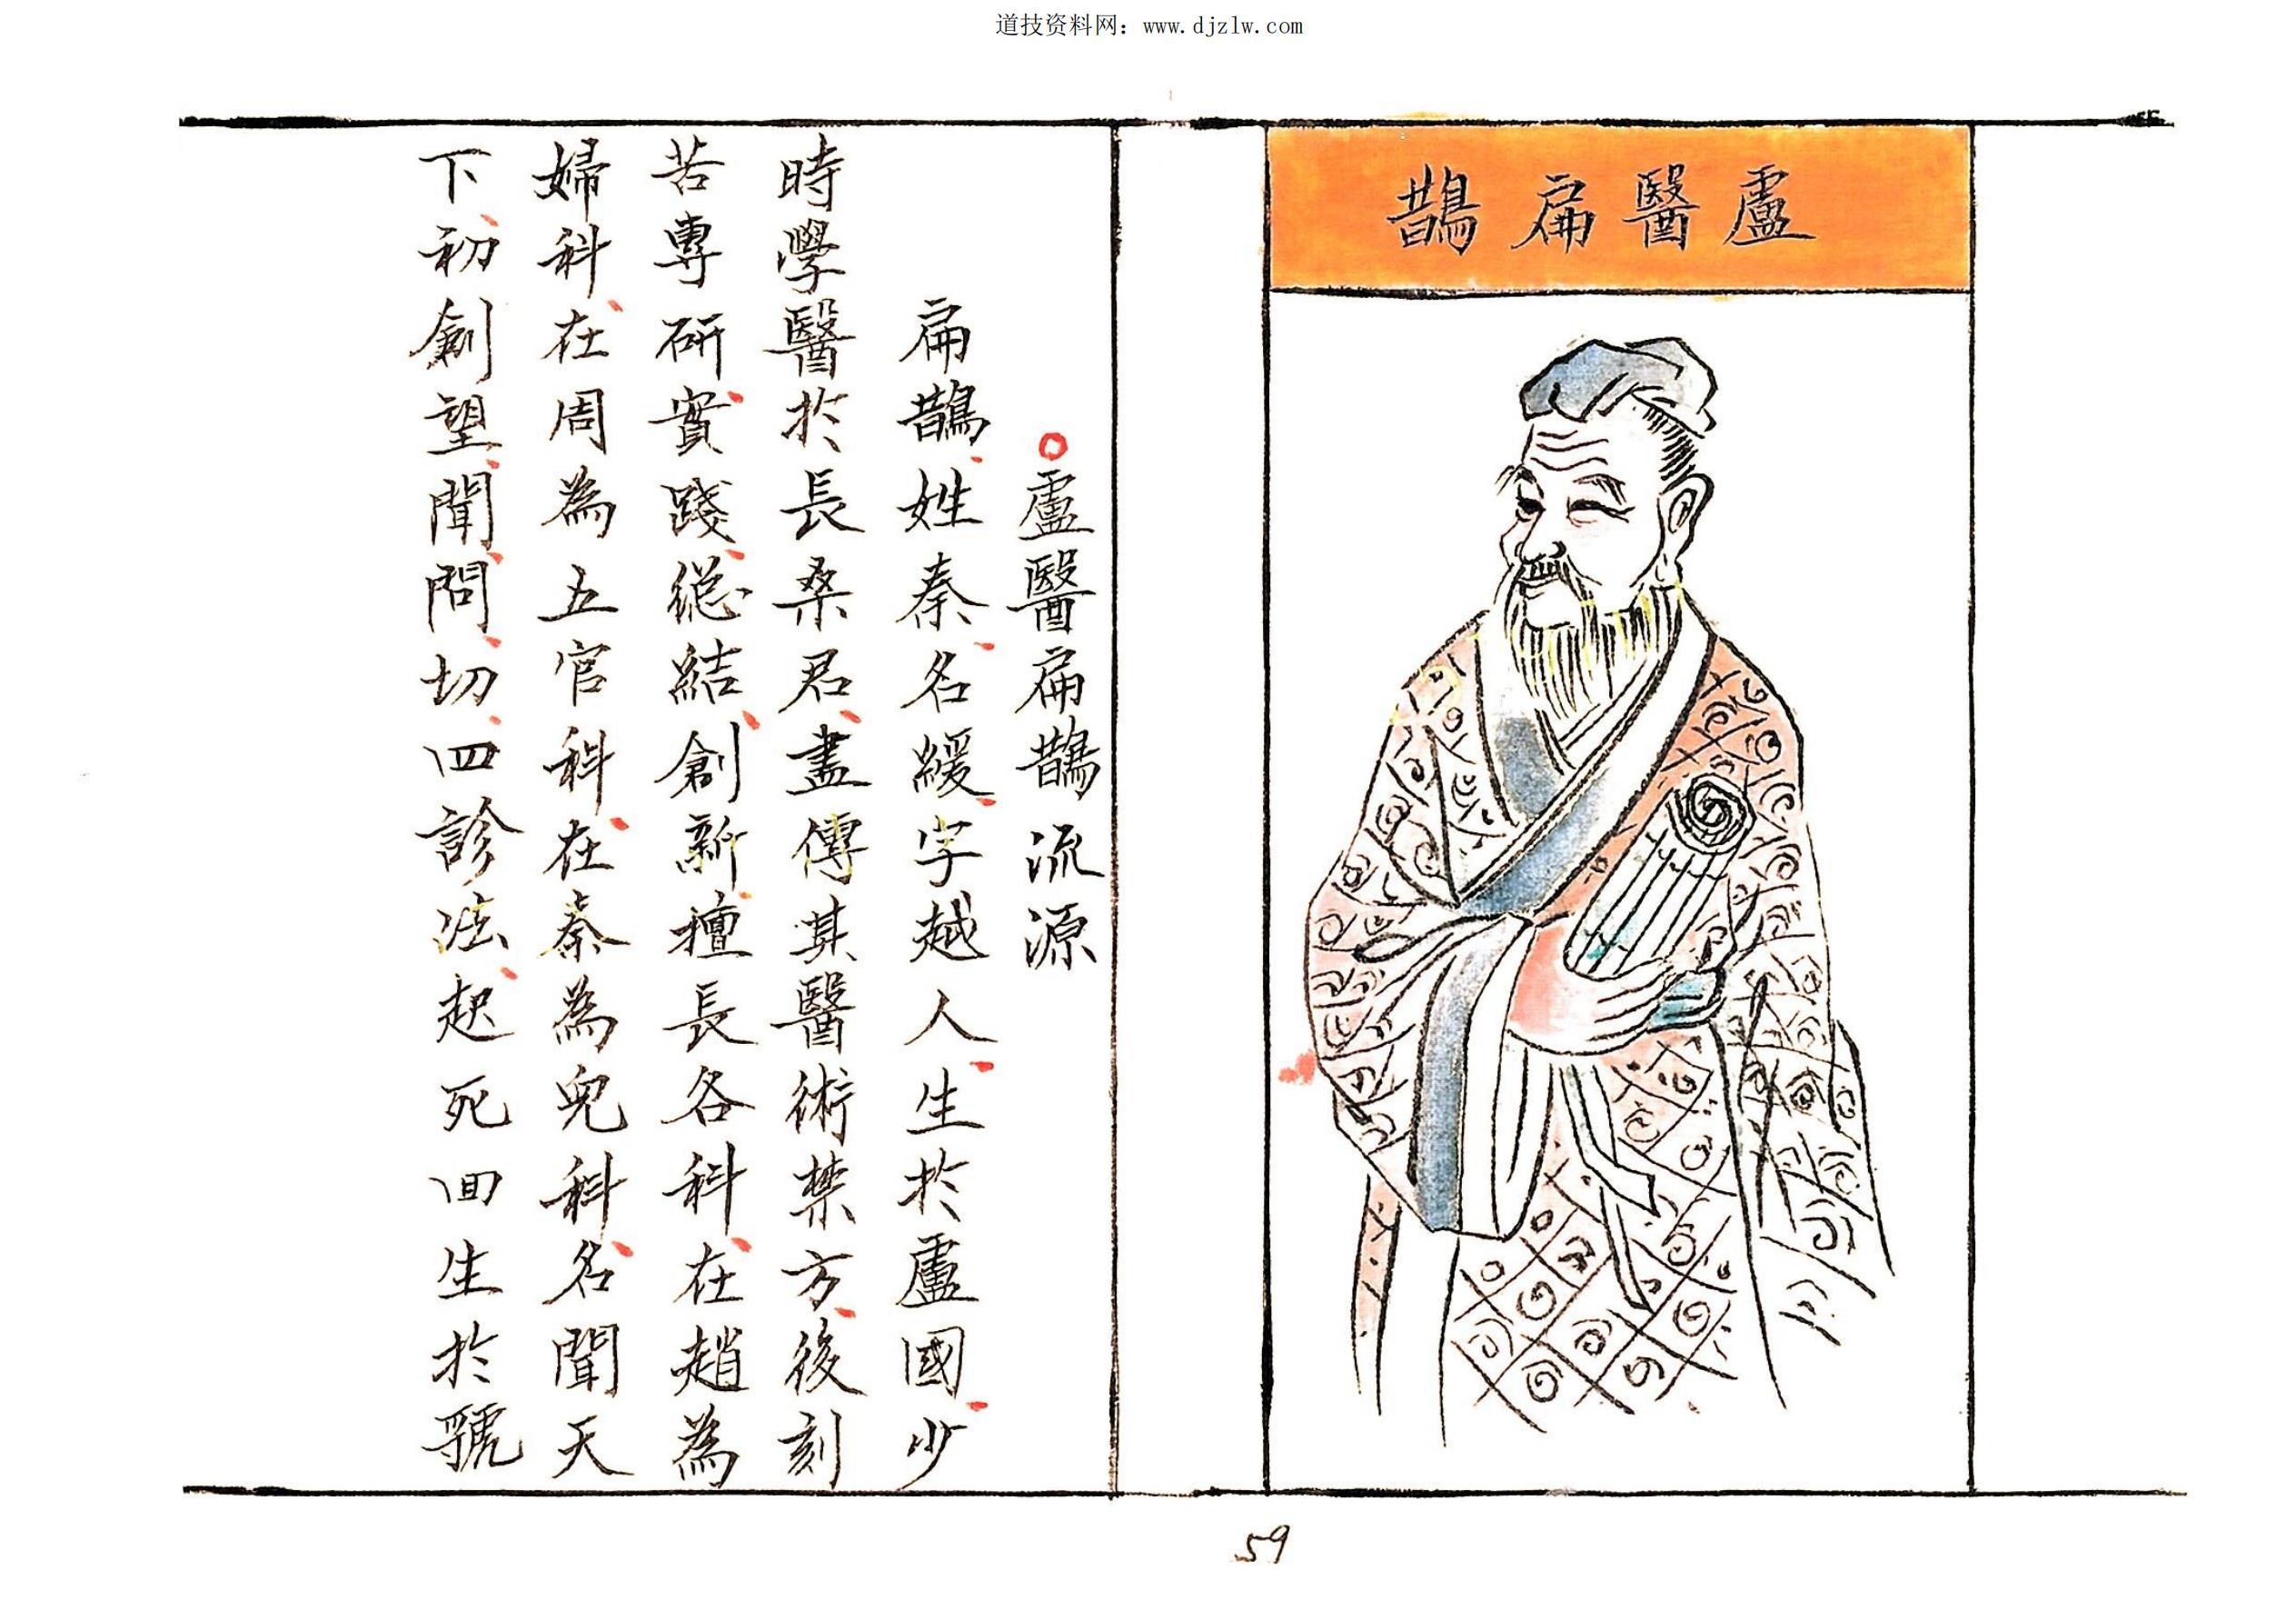 道技资料网：www.djzlw.com
盧醫扁鵲
盧醫扁鵲流源
扁鵲、姓秦、名緩、字越人、生於盧國、少
時學醫於長桑君、盡傳其醫術禁方、後刻
苦專研、實踐、總結、創新、擅長各科、在趙為
婦科、在周為五官科、在秦為兒科、名聞天
下、初創望、聞、問、切、四診法、起死回生於虢
59